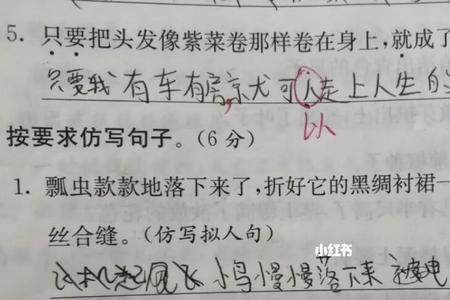 5. 只要把头发像紫菜卷那样卷在身上,就成了
只要我有车有房,京尤可人走上人生的
以
按要求仿写句子。(6分)
1. 瓢虫款款地落下来了,折好它的黑绸衬裙一
丝合缝。(仿写拟人句)
小红书
小鸟慢慢落下来